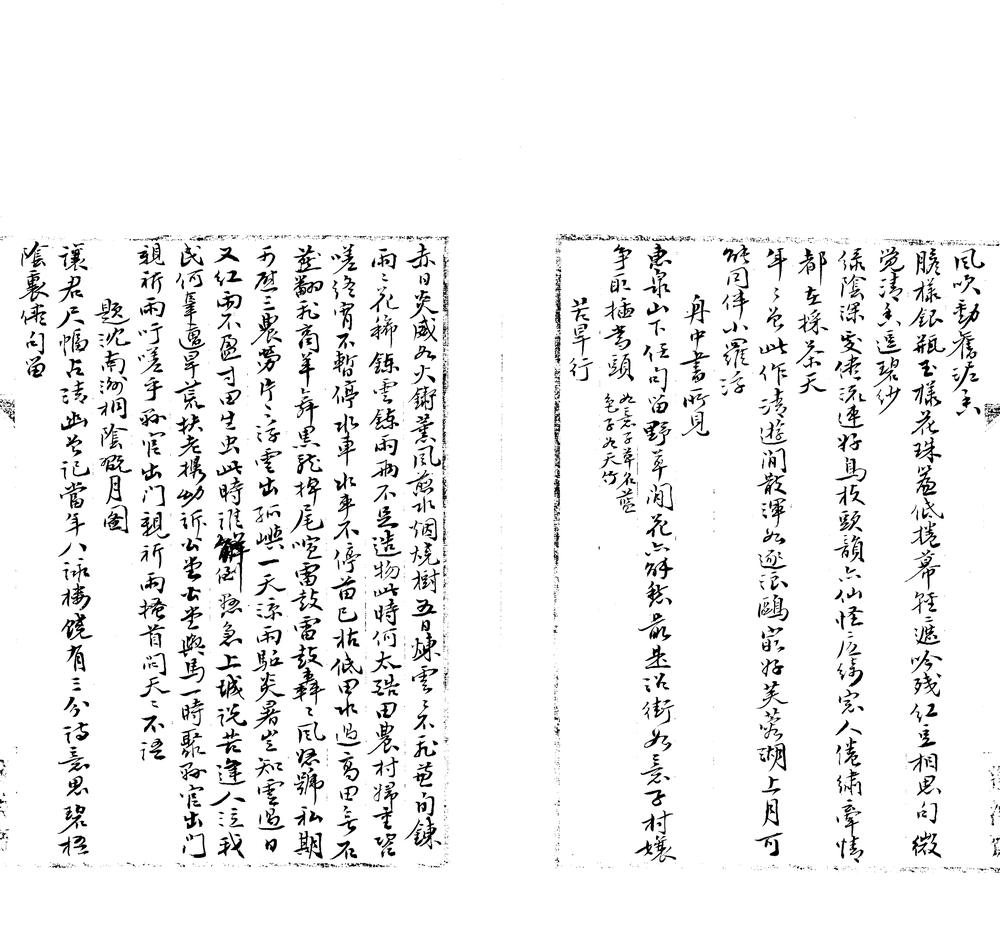 風吹動舊浥去
膽樣銀瓶玉樣花珠簾低捲幕輕遮吟殘紅豆相思句微
覺清香逗碧紗
綠陰深處儘流連好鳥枝頭韻亦仙怪底綺窗人倦繡牽情
都在採茶天
年年為此作清遊閒散渾如逐浪鷗最好芙蓉湖上月可
能同伴小羅浮
舟中書所見
惠泉山下任句留野草閒花亦解愁最是沿街如意子村孃
爭取插當頭如意子草名藍色子如天竹
苦旱行
赤日炎威如火鑠薰風煎水烟燒樹五日煉雲雲不飛兼旬鍊
雨雨花稀鍊雲鍊雨兩不足造物此時何太酷田農村婦重咨
嗟終宵不暫停水車水車不停苗已枯低田水過高田無石
燕翻飛商羊舞黑龍掉尾喧雷鼓雷鼓轟轟風怒號私期
可慰三農勞片片浮雲出孤嶼一天涼雨驅炎暑豈知雲過日
又紅雨不盈寸田生虫此時誰解倒懸急上城說苦逢人泣我
民何辜遭旱荒扶老攜幼訴公堂公堂輿馬一時聚縣官出門
親祈雨吁嗟乎縣官出門親祈雨搔首問天天不語
題沈南洲桐陰翫月圖
讓君尺幅占清幽曾記當年八詠樓饒有三分詩意思碧梧
陰裏儘句留